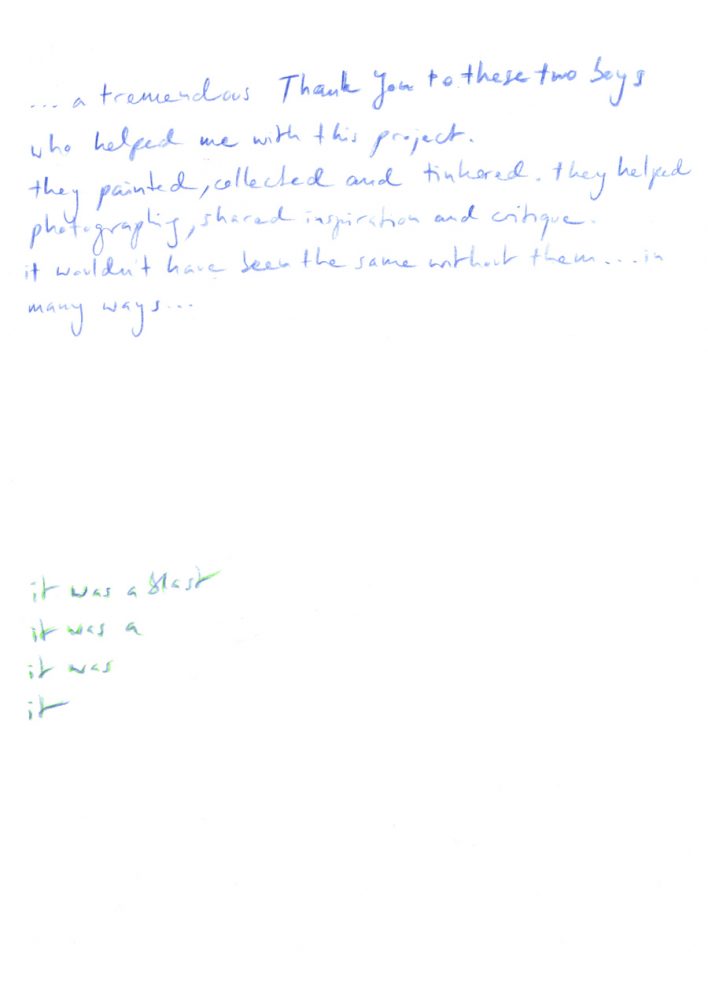 ... a tremendous Thank You to these two boys
who helped me with this project.
they painted, collected and tinkered. they helped
photographig, shared inspiration and critique.
it wouldn't have been the same without them... in
many ways...
it was a blast
it was a
it was
it